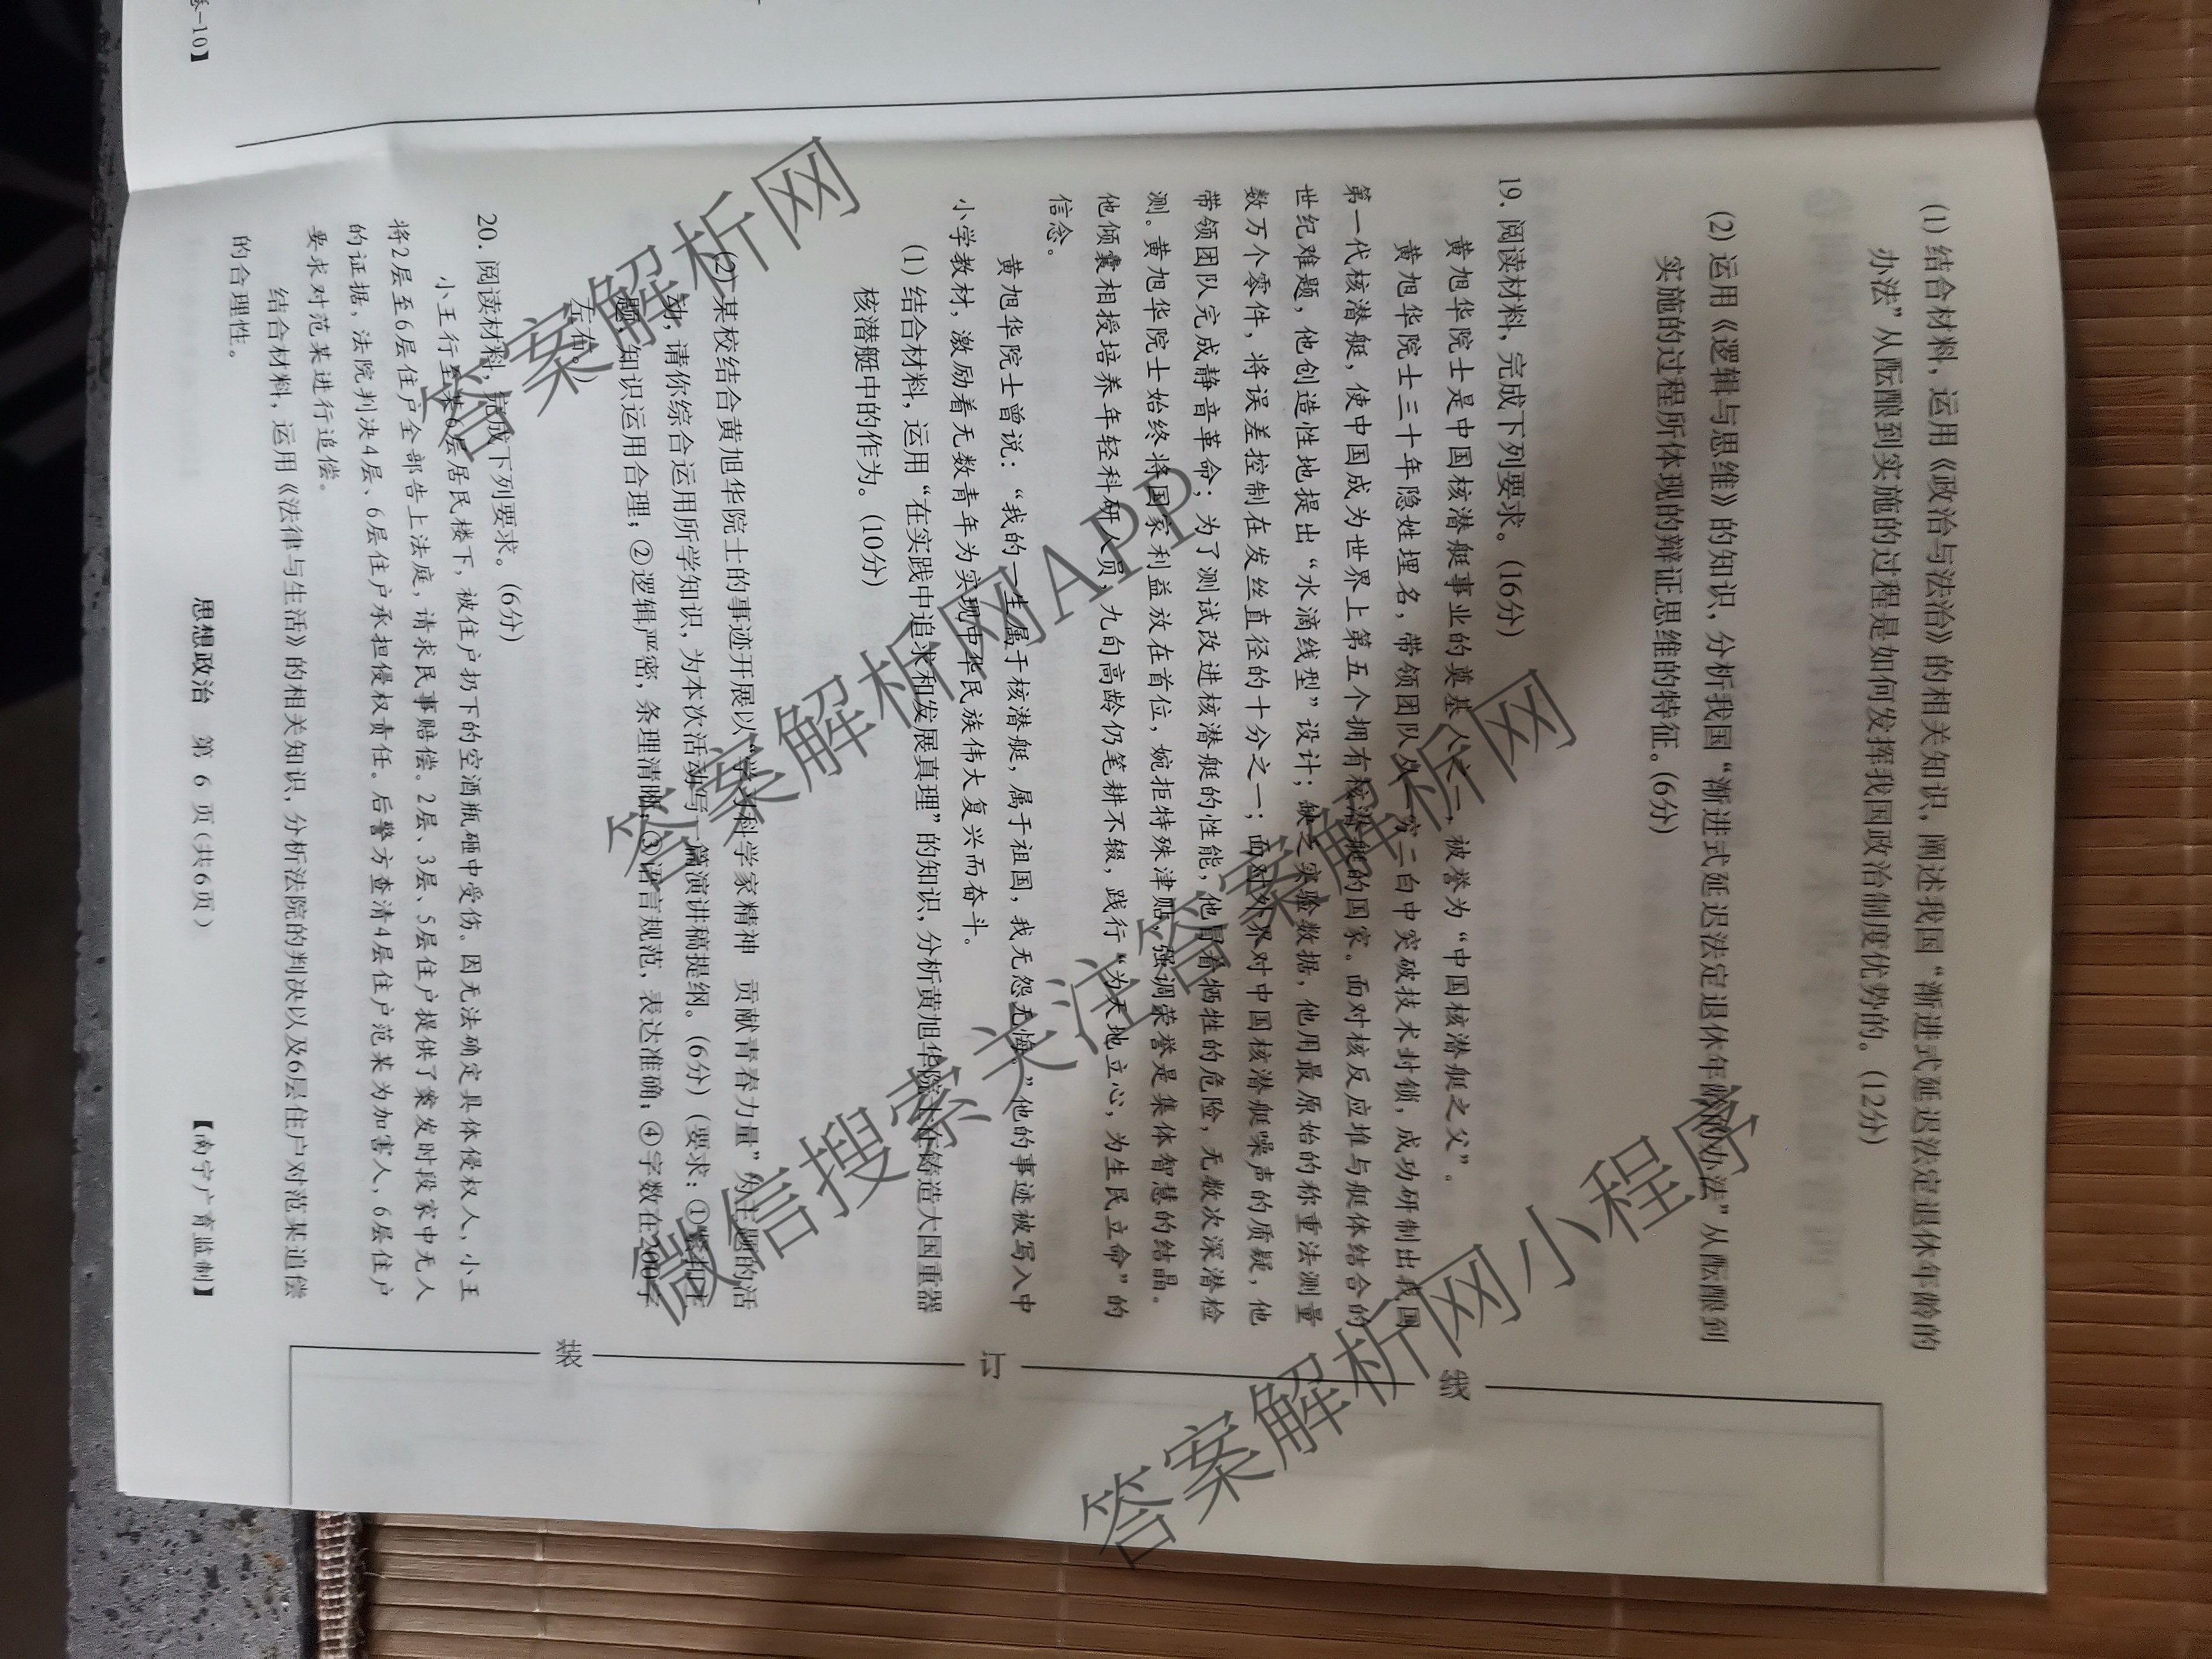 卷-10】
(1) 结合材料，运用《政治与法治》的相关知识，阐述我国“渐进式延迟法定退休年龄的
办法”从酝酿到实施的过程是如何发挥我国政治制度优势的。(12分)
(2) 运用《逻辑与思维》的知识，分析我国“渐进式延迟法定退休年龄的办法”从酝酿到
实施的过程所体现的辩证思维的特征。(6分)
19. 阅读材料，完成下列要求。(16分)
黄旭华院士是中国核潜艇事业的奠基人之一，被誉为“中国核潜艇之父”。
黄旭华院士三十年隐姓埋名，带领团队从一穷二白中突破技术封锁，成功研制出我国
第一代核潜艇，使中国成为世界上第五个拥有核潜艇的国家。面对核反应堆与艇体结合的
世纪难题，他创造性地提出“水滴线型”设计；缺乏实验数据，他用最原始的称重法测量
数万个零件，将误差控制在发丝直径的十分之一；面对外界对中国核潜艇噪声的质疑，他
带领团队完成静音革命；为了测试改进核潜艇的性能，他冒着牺牲的危险，无数次深潜检
测。黄旭华院士始终将国家利益放在首位，婉拒特殊津贴，强调荣誉是集体智慧的结晶。
他倾囊相授培养年轻科研人员，九旬高龄仍笔耕不辍，践行“为天地立心，为生民立命”的
信念。
黄旭华院士曾说：“我的一生属于核潜艇，属于祖国，我无怨无悔。”他的事迹被写入中
小学教材，激励着无数青年为实现中华民族伟大复兴而奋斗。
(1) 结合材料，运用“在实践中追求和发展真理”的知识，分析黄旭华院士在铸造大国重器
核潜艇中的作为。(10分)
(2) 某校结合黄旭华院士的事迹开展以“学习科学家精神 贡献青春力量”为主题的活
动，请你综合运用所学知识，为本次活动写一篇演讲稿提纲。(6分)（要求：①紧扣主
题，知识运用合理；②逻辑严密，条理清晰；③语言规范，表达准确；④字数在200字
左右。）
20. 阅读材料，完成下列要求。(6分)
小王行至某6层居民楼下，被住户扔下的空酒瓶砸中受伤。因无法确定具体侵权人，小王
将2层至6层住户全部告上法庭，请求民事赔偿。2层、3层、5层住户提供了案发时段家中无人
的证据，法院判决4层、6层住户承担侵权责任。后警方查清4层住户范某为加害人，6层住户
要求对范某进行追偿。
结合材料，运用《法律与生活》的相关知识，分析法院的判决以及6层住户对范某追偿
的合理性。
思想政治 第 6 页(共6页)
【南宁广育监制】
装
订
线
答案解析网
答案解析网APP
微信搜索关注答案解析网
答案解析网小程序